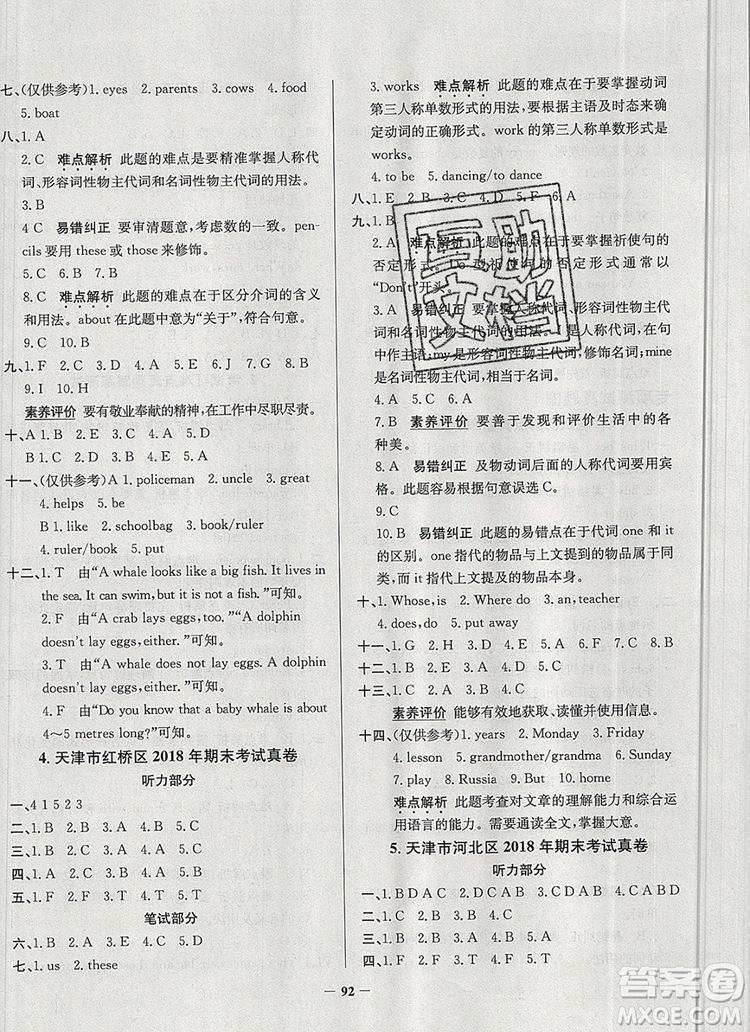 七、(仅供参考)1. eyes 2. parents 3. cows 4. food
5. boat
八、1. A
2. C 难点解析 此题的难点是要精准掌握人称代
词、形容词性物主代词和名词性物主代词的用法。
3. B
4 C 易错纠正 要审清题意，考虑数的一致。pen-
cils 要用 these 或 those 来修饰。
5. C 6. B 7. B
8. C 难点解析 此题的难点在于区分介词的含义
和用法。about 在此题中意为“关于”，符合句意。
9. C 10. B
九、1. F 2. C 3. D 4. B 5. E 6. J 7. G 8. A
9. I 10. H
素养评价 要有敬业奉献的精神，在工作中尽职尽责。
十、A 1. B 2. E 3. C 4. A 5. D
B 1. C 2. E 3. D 4. A 5. B
十一、(仅供参考)A 1. policeman 2. uncle 3. great
4. helps 5. be
B 1. like 2. schoolbag 3. book/ruler
4. ruler/book 5. put
十二、1. T 由“A whale looks like a big fish. It lives in
the sea. It can swim, but it is not a fish.”可知。
2. F 由“A crab lays eggs, too.”“A dolphin
doesn't lay eggs, either.”可知。
3. T 由“A whale does not lay eggs. A dolphin
doesn't lay eggs, either.”可知。
4. F 由“Do you know that a baby whale is about
4～5 metres long?”可知。
4. 天津市红桥区 2018 年期末考试真卷
听力部分
一、4 1 5 2 3
二、1. B 2. B 3. A 4. B 5. C
三、1. B 2. D 3. A 4. C 5. C
四、1. A 2. B 3. A 4. B 5. A
五、1. T 2. F 3. F 4. T 5. T
笔试部分
六、1. B 2. C 3. B 4. A 5. C
七、1. us 2. these
3. works 难点解析 此题的难点在于要掌握动词
第三人称单数形式的用法，要根据主语及时态来掌握
动词的正确形式。work 的第三人称单数形式是
works。
4. to be 5. dancing/to dance
八、1. E 2. B 3. C 4. D 5. F 6. A
九、1. B
2. A 难点解析 此题的难点在于要掌握祈使句的
否定形式。Do 型祈使句的否定形式通常以
“Don't”开头。
3. A 易错纠正 要掌握人称代词、形容词性物主代
词和名词性物主代词的用法。I是人称代词，在句
中作主语；my 是形容词性物主代词，修饰名词；mine
是名词性物主代词，相当于名词。
4. A 5. C 6. A
7. B 素养评价 要善于发现和评价生活中的各
种美。
8. A 易错纠正 及物动词后面的人称代词要用宾
格。此题容易根据句意误选 C。
9. C
10. B 易错纠正 此题的易错点在于代词 one 和 it
的区别。one 指代的物品与上文提及的物品属于同
类，而 it 指代上文提及的物品本身。
十、1. Whose, is 2. Where do 3. an, teacher
4. does, do 5. put away
十一、1. G 2. H 3. D 4. E 5. A 6. F 7. B 8. C
十二、1. B 2. C 3. D 4. A 5. E
十三、1. C 2. B 3. C 4. C 5. A
素养评价 能够有效地获取、读懂并使用信息。
十四、(仅供参考)1. years 2. Monday 3. Friday
4. lesson 5. grandma/grandmother 6. Sunday
7. play 8. Russia 9. But 10. home
难点解析 此题考查对文章的理解能力和综合运
用语言的能力。需要通读全文，掌握大意。
5. 天津市河北区 2018 年期末考试真卷
听力部分
一、1. B D A C 2. D B A C 3. C A D B
二、1. B 2. C 3. A 4. B 5. A 6. C
三、1. B 2. A 3. B 4. A 5. B 6. C
四、1. F 2. F 3. T 4. F 5. T 6. T
92
互助
文档
答案圈
MXQE.COM